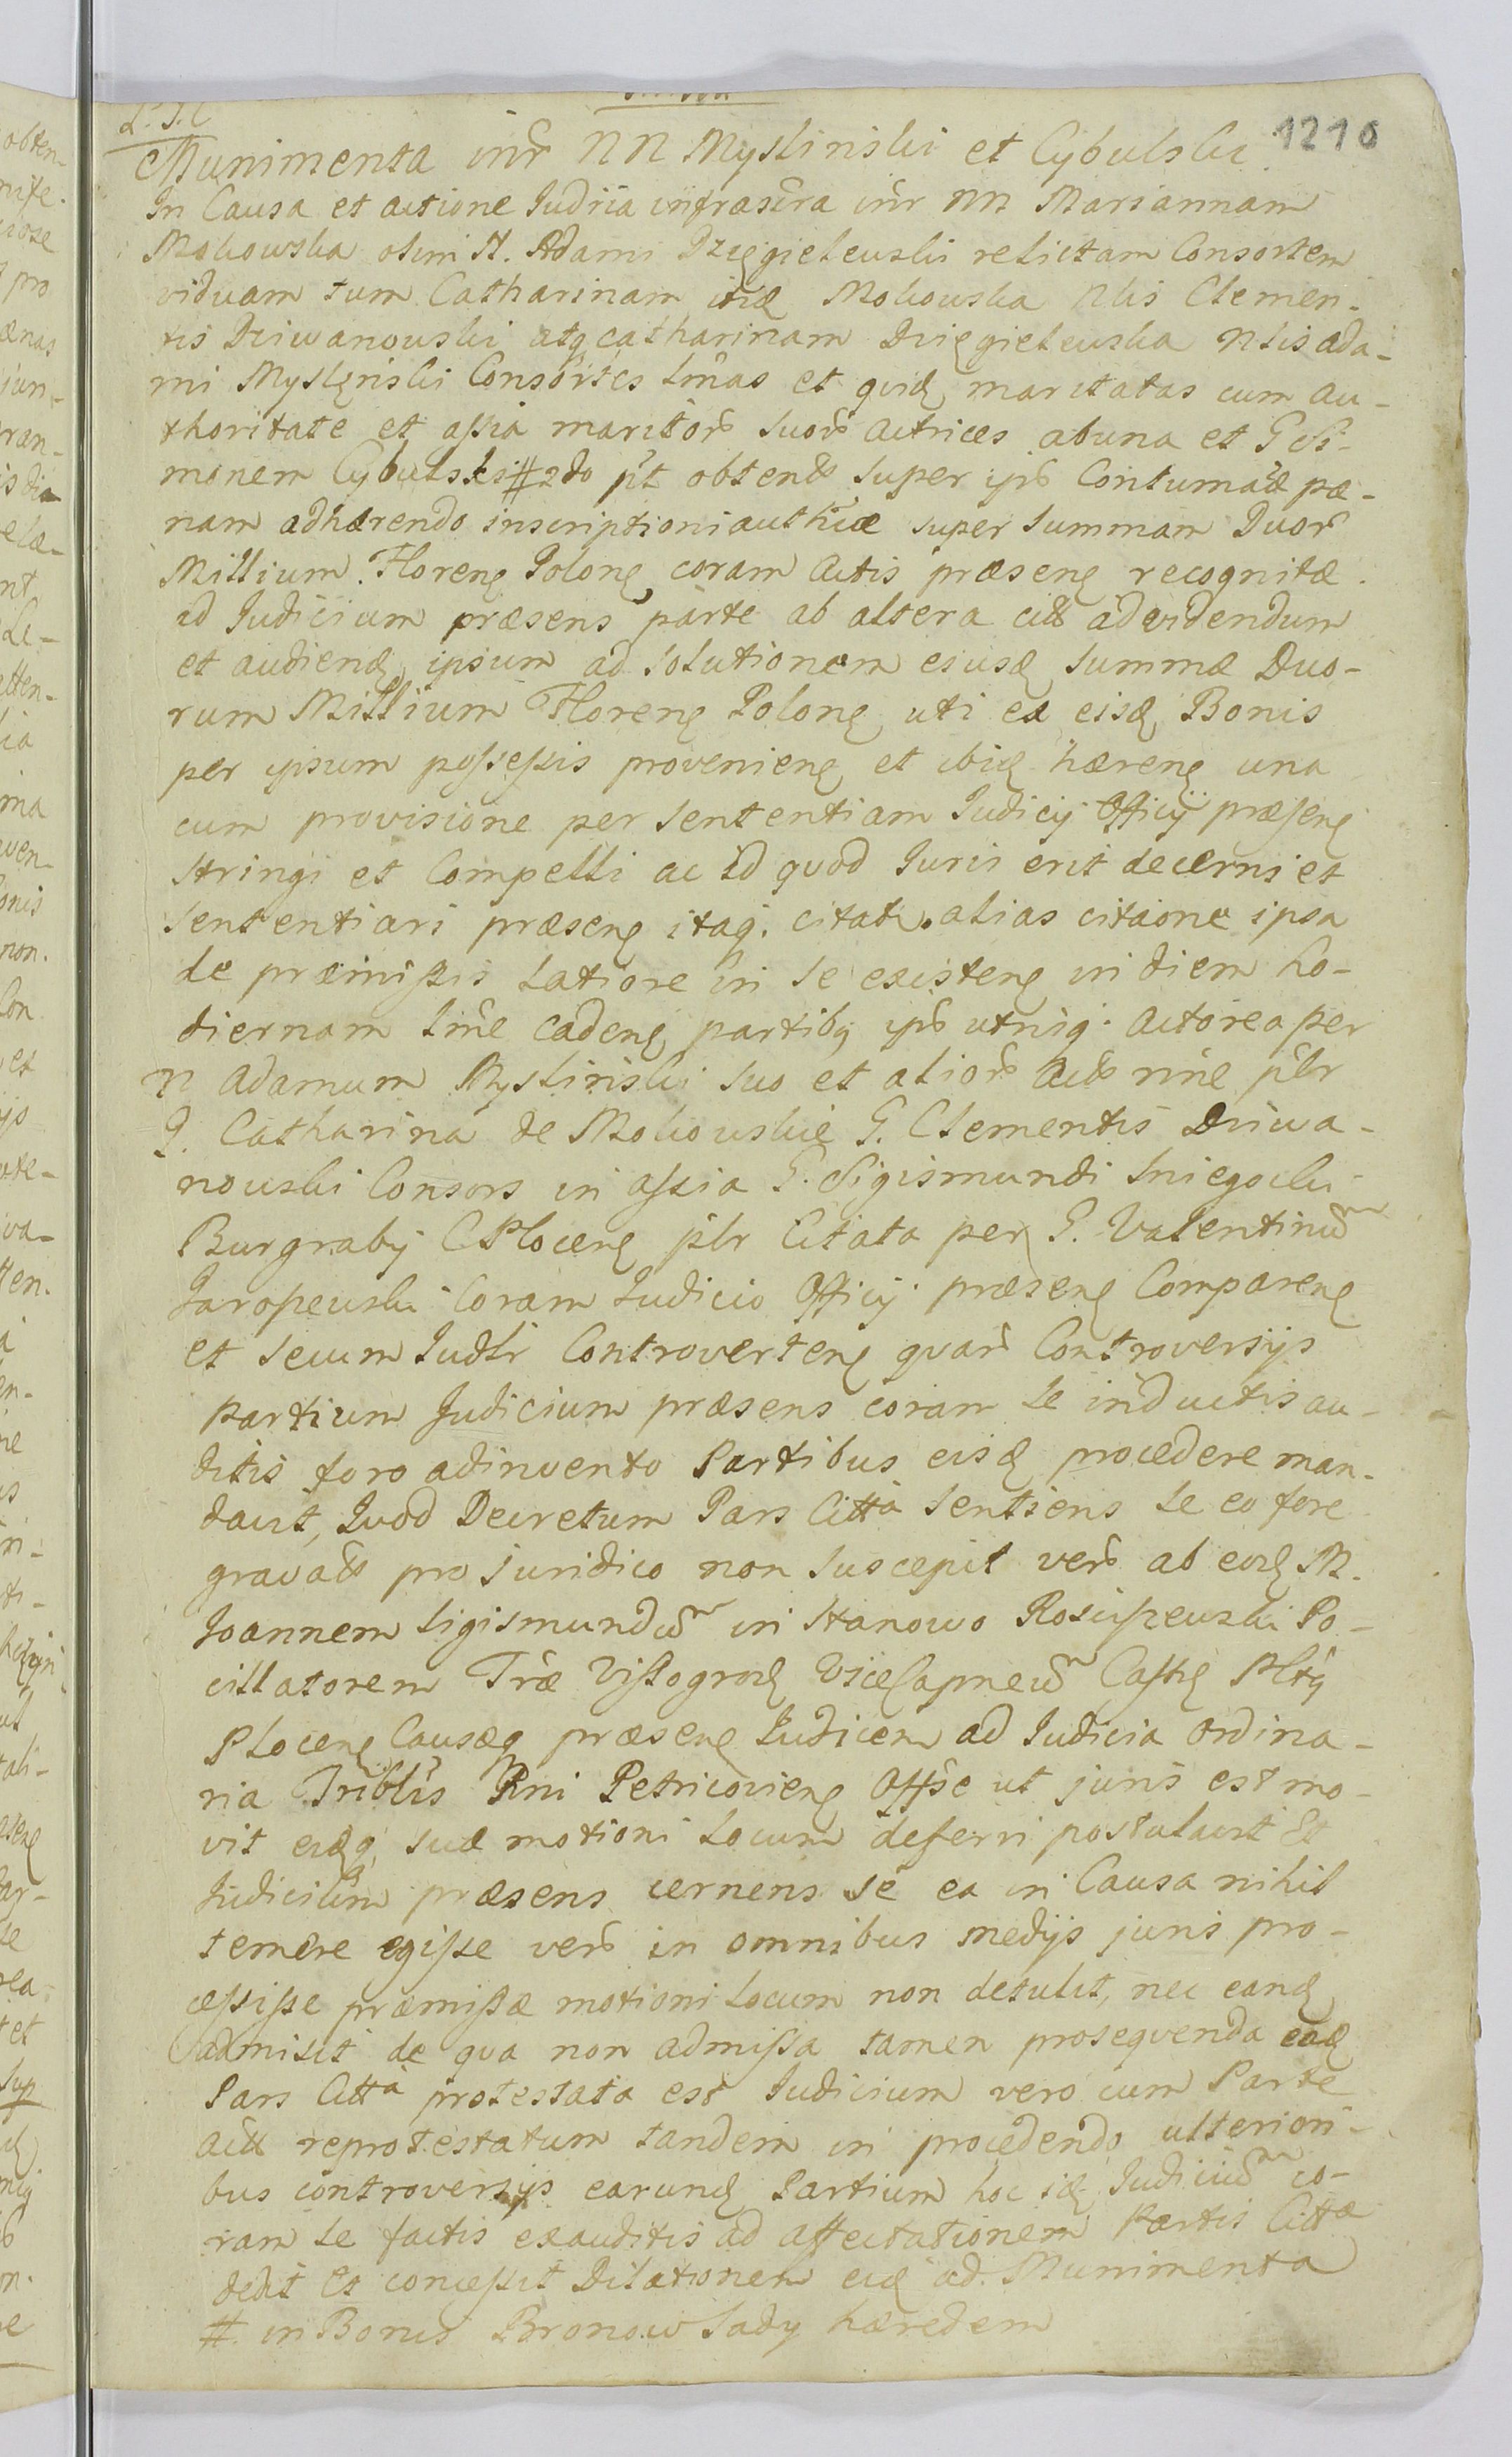 1210
Munimenta inr̃ NN Myslinski et Cybulski
In Causa et actione Judria infrascra inr NN Mariannam
Mokowska olim N. Adami Dzięgielewski relictam Consortem
viduam tum Catharinam itid Mokowska Nlis Clemen-
tis Driwanowski atq catharinam Dzięgielewska Nlis Ada-
mi Myslęnski Consortes lmas et quid maritatas cum au-
thoritate et assia maritor̃ suor̃ Actrices abuna et G Si-
monem Cybulski # 2do pt obtend super ipõ Contumaciæ pæ-
nam adhærendo inscriptioni authcæ super summam Duor̃
Millium Floreng Polong coram Actis præseng recognitæ.
ad Judicium præsens parte ab altera citt ad videndum
et audiend ipsum ad solutionem eiusd summæ Duo-
rum Millium Floreng Polong uti ex eisd Bonis
per ipsum possessis provenieng et ibid hæreng una
cum provisione per sententiam Judicij Officij præseng
stringi et Compelli ac id quod Juris erit decerni et
sententiari præseng itaq. citatu. alias citaõne ipsa
de præmissis latiore in se existeng in diem ho-
diernam lme cadeng partibq ipõ utriq. Actorea per
N Adamum Myslinski suo et alior̃ Actõ nne plr
G. Catharina de Mokowskie G. Clementis Driwa-
nowski Consors in assia G. Sigismundi Sniegocki
Burgrabij C Ploceng plr Citata per G. Valentinũ
Jaropewski Coram Judicio Officij præseng Compareng
et secum Judlr Controverteng quar̃ Controversijs
partium Judicium præsens coram se inductis au-
ditis foro adinvento Partibus eisd procedere man-
davit, Quod Decretum Pars Citta sentiens se eo fore
gravatõ pro juridico non suscepit verõ ab eod M.
Joannem Sigismundũ in Stanowo Rosciszewski Po-
cillatorem Træ Vissogrod Vicesapneũ Castrg Pltq
Ploceng Causæq præseng Judicem ad Judicia ordina-
ria Triblis Rni Petricovieng Offse ut juris est mo-
vit eidq suæ motioni locum deferri postulavit Et
Judicium præsens cernens se ea in Causa nihil
temere egisse verõ in omnibus medijs juris pro-
cessisse præmissæ motioni locum non detulit, nec eand
admisit de qua non admissa tamen prosequenda ead
Pars Citta protestata est Judicium vero cum Parte
Actt reprotestatum tandem in procedendo ulteriori-
bus controversijs earund Partium hoc id Judiciũ co-
ram se factis exauditis ad affectationem Partis Cittæ
dedit et concessit Dilationem eid ad Munimenta
# in Bonis Bronow Sady hæredem